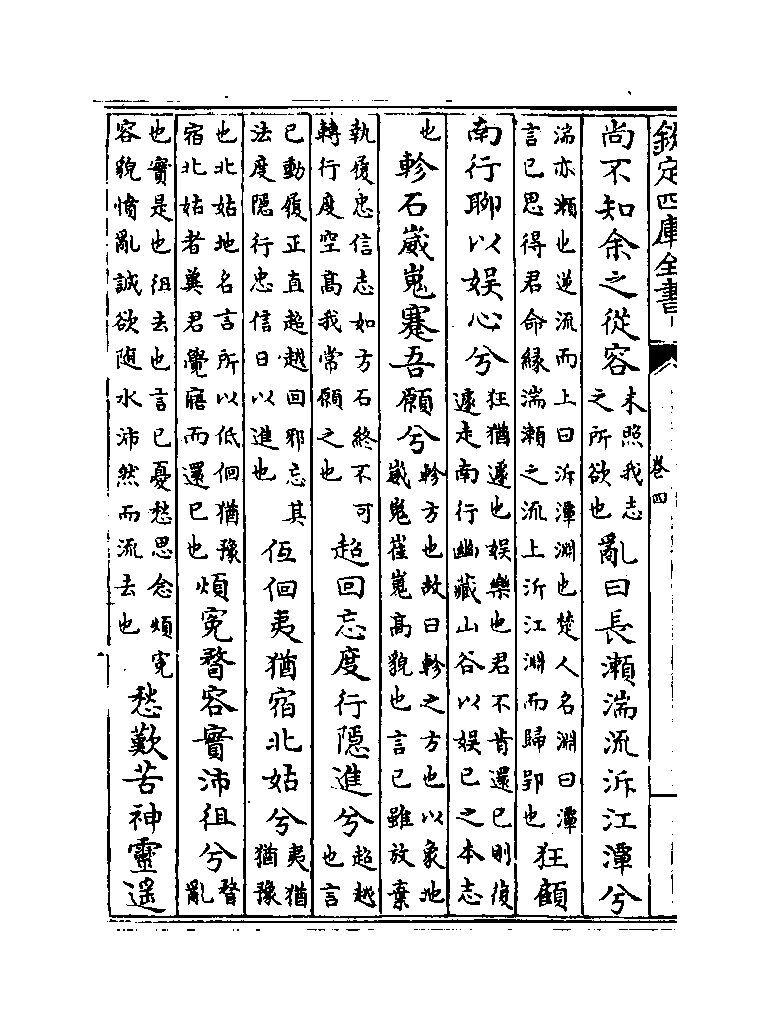 欽定四庫全書 卷四
尚不知余之從容未照我志之所欲也亂曰長瀨湍流泝江潭兮
湍亦瀨也逆流而上曰泝潭淵也楚人名淵曰潭言已思得君命縁湍瀨之流上泝江淵而歸郢也狂顧
南行聊以娛心兮狂猶遽也娛樂也君不肯還已則復遽走南行幽藏山谷以娛已之本志
也軫石崴嵬蹇吾願兮軫方也故曰軫之方也以象地崴嵬崔嵬高貌也言已雖放棄
執履忠信志如方石終不可轉行度空高我常願之也超回忘度行隠進兮超越也言
已動履正直超越回邪忘其法度隠行忠信日以進也低佪夷猶宿北姑兮夷猶猶豫
也北姑地名言所以低佪猶豫宿北姑者冀君覺寤而還已也煩寃瞀容實沛徂兮瞀亂
也實是也徂去也言已憂愁思念煩寃容貌憤亂誠欲随水沛然而流去也愁歎苦神靈遥